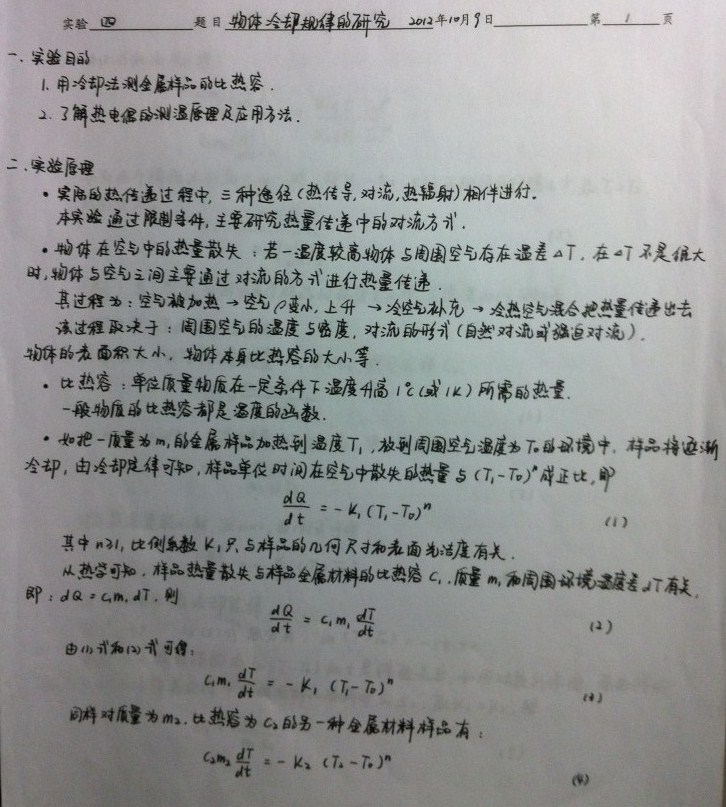 实验 四 题目 物体冷却规律的研究 2012年10月9日 第 1 页
一、实验目的
1. 用冷却法测金属样品的比热容.
2. 了解热电偶的测温原理及应用方法.
二、实验原理
• 实际的热传递过程中, 三种途径 (热传导, 对流, 热辐射) 相伴进行.
本实验通过限制条件, 主要研究热量传递中的对流方式.
• 物体在空气中的热量散失 : 若一温度较高物体与周围空气存在温差△T, 在△T不是很大
时, 物体与空气之间主要通过对流的方式进行热量传递.
其过程为 : 空气被加热 → 空气ρ变小, 上升 → 冷空气补充 → 冷热空气混合把热量传递出去
该过程取决于 : 周围空气的温度与密度, 对流的形式 (自然对流或强迫对流),
物体的表面积大小, 物体本身比热容的大小等.
• 比热容 : 单位质量物质在一定条件下温度升高1℃(或1K) 所需的热量.
一般物质的比热容都是温度的函数.
• 如把一质量为m₁的金属样品加热到温度T₁, 放到周围空气温度为T₀的环境中, 样品将逐渐
冷却, 由冷却定律可知, 样品单位时间在空气中散失的热量与(T₁-T₀)ⁿ成正比, 即
dQ/dt = -K₁(T₁-T₀)ⁿ (1)
其中n≥1, 比例系数K₁只与样品的几何尺寸和表面光洁度有关.
从热学可知, 样品热量散失与样品金属材料的比热容C₁, 质量m₁和周围环境温度差dT有关,
即 : dQ = c₁m₁dT, 则
dQ/dt = c₁m₁ dT/dt (2)
由(1)式和(2)式可得:
c₁m₁ dT/dt = -K₁ (T₁-T₀)ⁿ (3)
同样对质量为m₂, 比热容为C₂的另一种金属材料样品有 :
c₂m₂ dT/dt = -K₂ (T₂-T₀)ⁿ (4)